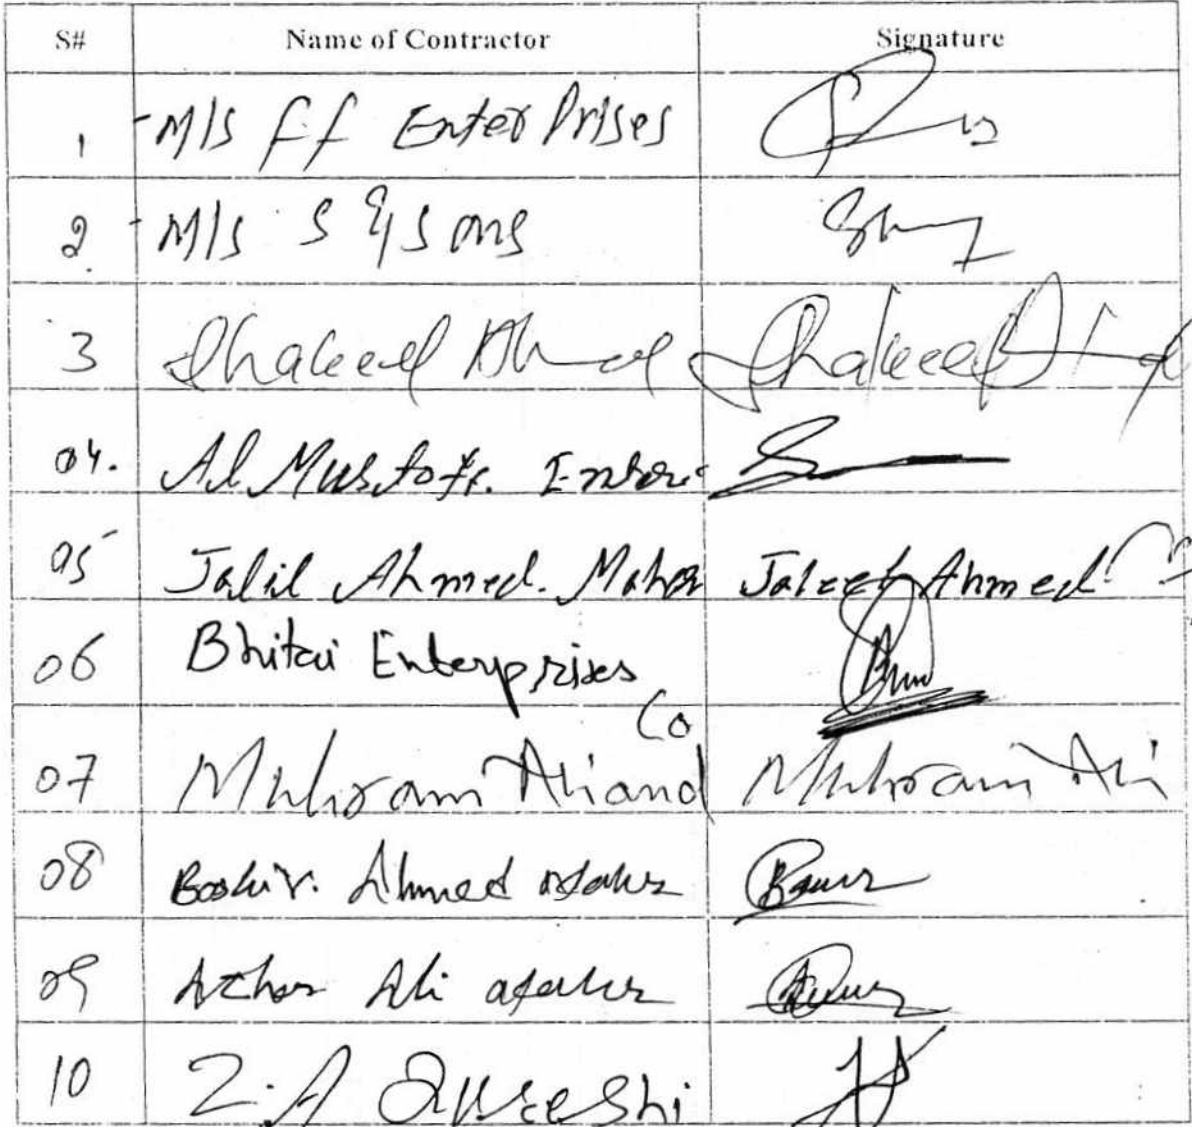 S# Name of Contractor Signature
1 M/s FF EnterPrises
2 M/s S & Sons
3 Shakeel Ahmed Shakeel
04. Al Mustafa.
05 Jalil Ahmed. Jaleel Ahmed
06 Bhitai Enterprises
07 Muhram Ali and Co Muhram Ali
08 Bashir. Ahmed
09 Athar Ali
10 Z.A Qureshi